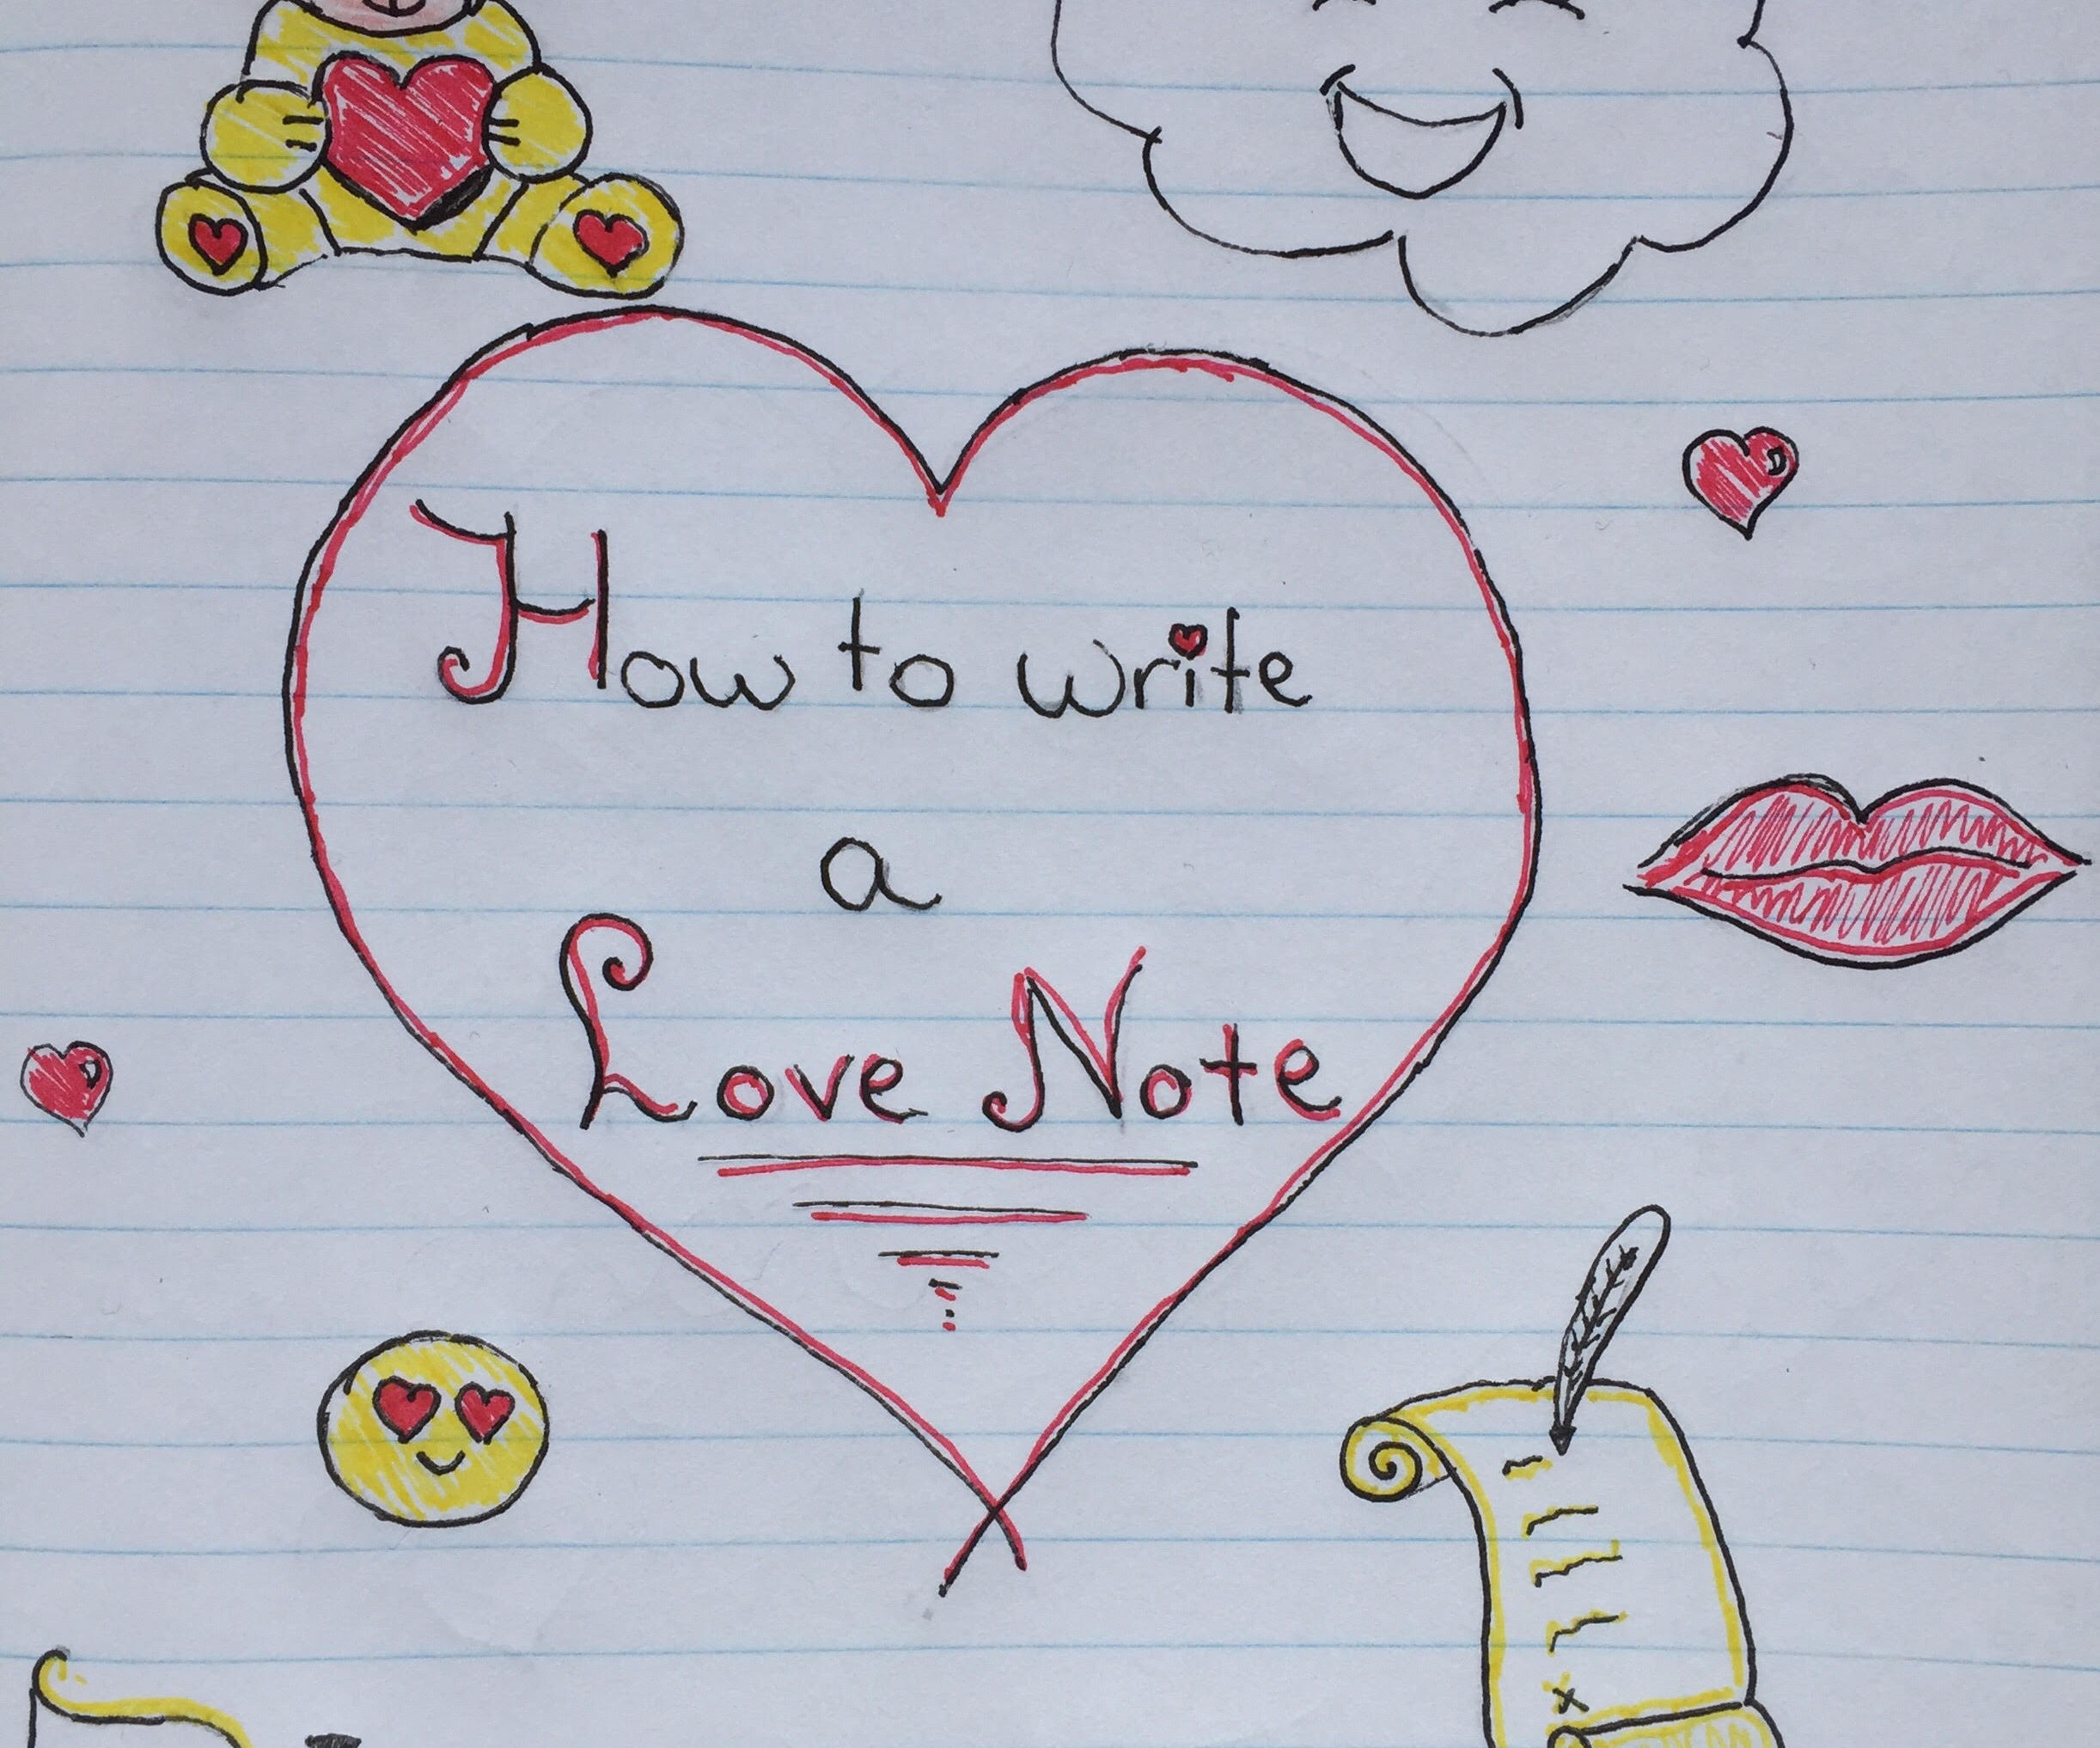 How to write
a
Love Note
x